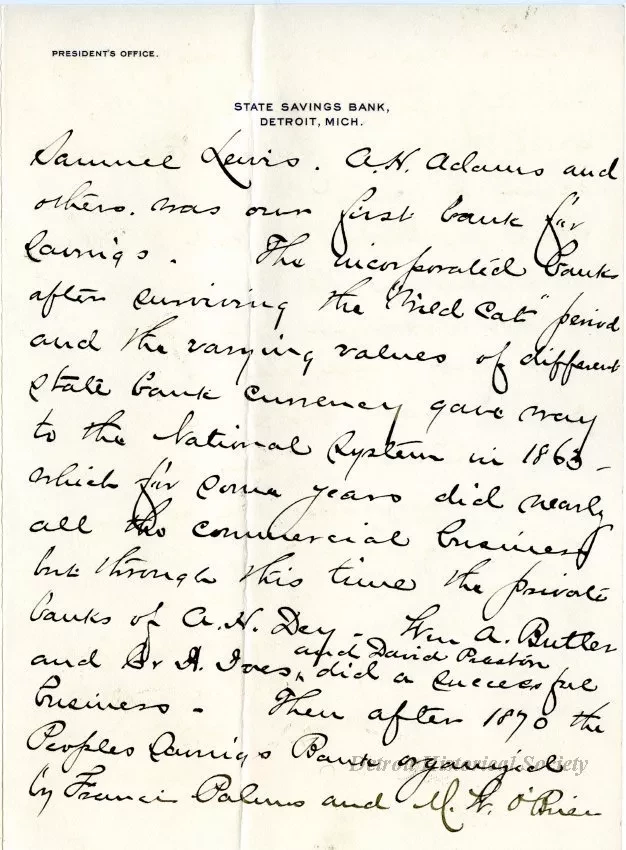 PRESIDENT'S OFFICE.
STATE SAVINGS BANK,
DETROIT, MICH.
Samuel Lewis. A.H. Adams and
others. was our first bank for
Savings. The incorporated banks
after surviving the "Wild Cat" period
and the varying values of different
State bank currency gave way
to the National System in 1863 -
which for some years did nearly
all the commercial business
but through this time the private
banks of A.H. Dey - Wm A. Butler
and David Preston
and A. Ives, did a successful
business - Then after 1870 the
Peoples Savings Bank organized
by Francis Palms and M. W. O'Brien
Detroit Historical Society